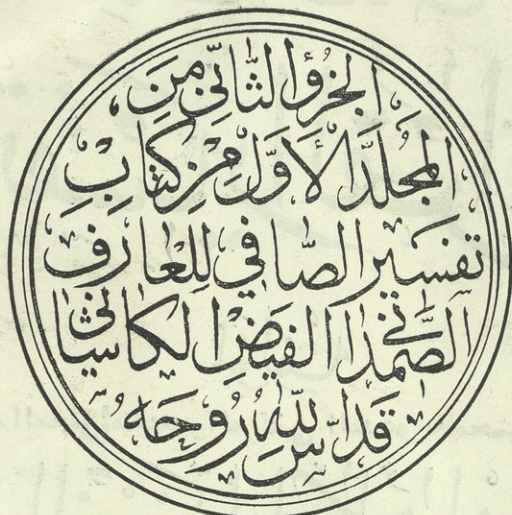 الجزؤ الثاني من
المجلد الاول من كتاب
تفسير الصافي للعارف
الصمداني الفيض الكاساني
قدس الله روحه